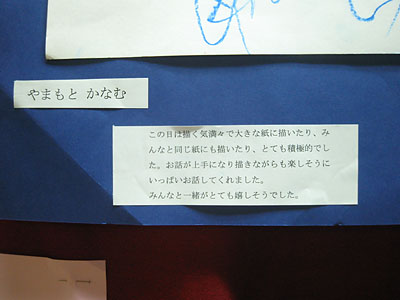 やまもと かなむ
この日は描く気満々で大きな紙に描いたり、み
んなと同じ紙にも描いたり、とても積極的でし
た。お話が上手になり描きながらも楽しそうに
いっぱいお話してくれました。
みんなと一緒がとても嬉しそうでした。